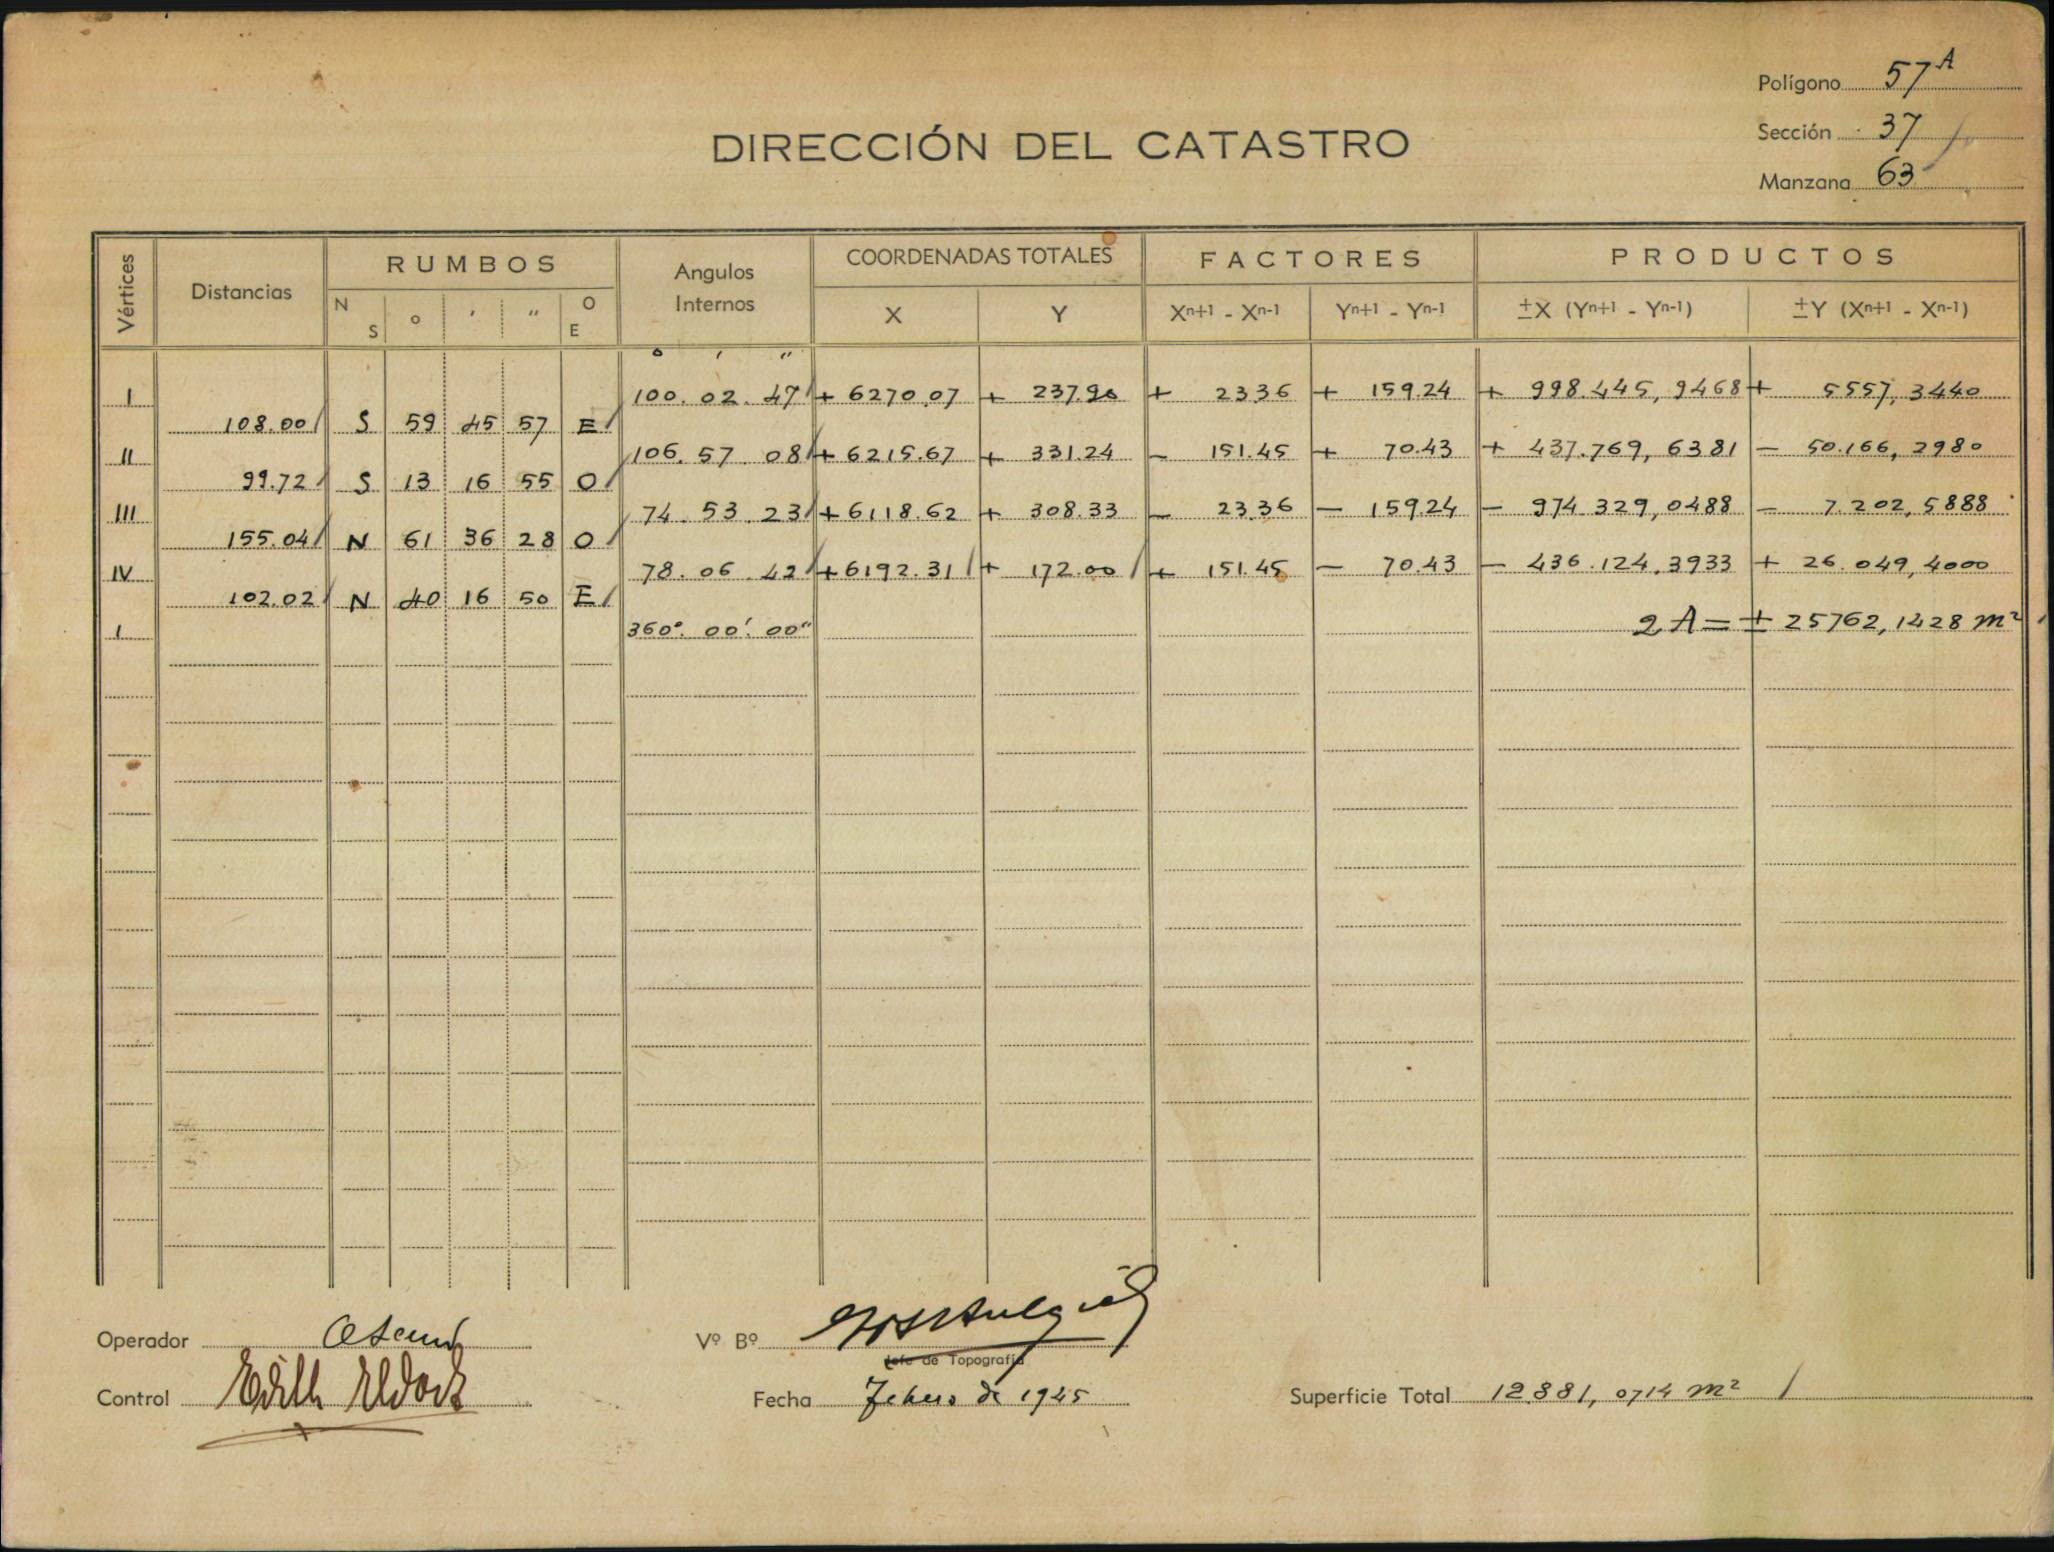 Polígono 57A
Sección 37
Manzana 63
DIRECCIÓN DEL CATASTRO
Vértices Distancias RUMBOS Angulos Internos COORDENADAS TOTALES FACTORES PRODUCTOS
N S ° ' " O E X Y Xn+1 - Xn-1 Yn+1 - Yn-1 ±X (Yn+1 - Yn-1) ±Y (Xn+1 - Xn-1)
° ' "
I 100. 02. 47 + 6270.07 + 237.90 + 23.36 + 159.24 + 998.445, 9468 + 5557, 3440
108.00 S 59 45 57 E
II 106. 57. 08 + 6215.67 + 331.24 - 151.45 + 70.43 + 437.769, 6381 - 50.166, 2980
99.72 S 13 16 55 O
III 74. 53. 23 + 6118.62 + 308.33 - 23.36 - 159.24 - 974.329, 0488 - 7.202, 5888
155.04 N 61 36 28 O
IV 78. 06. 42 + 6192.31 + 172.00 + 151.45 - 70.43 - 436.124, 3933 + 26.049, 4000
102.02 N 40 16 50 E
I 360°. 00'. 00" 2A = ± 25762, 1428 m²
Operador
Vº Bº
Jefe de Topografía
Control Edith
Fecha Febrero de 1945
Superficie Total 12.881, 0714 m²